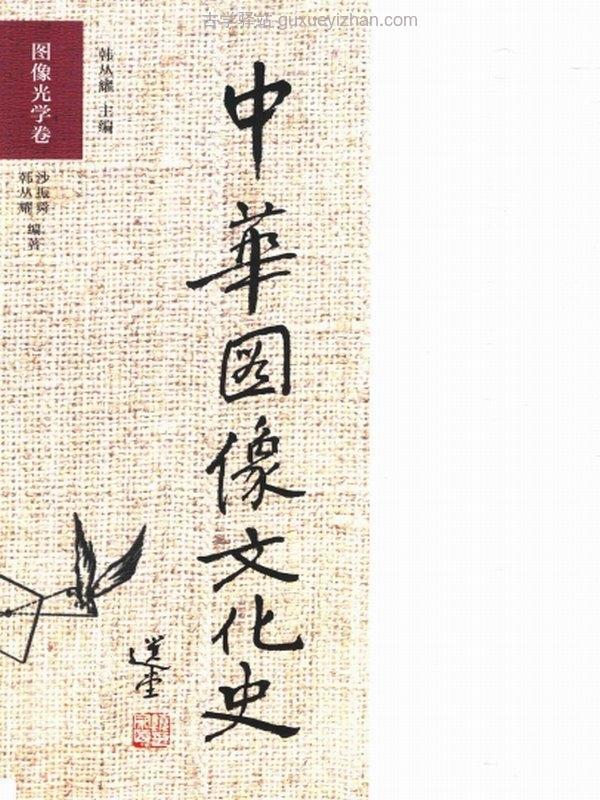 古学驿站 guxueyizhan.com
图像光学卷
韩丛耀 主编
沙振舜
韩丛耀 编著
中華图像文化史
选堂